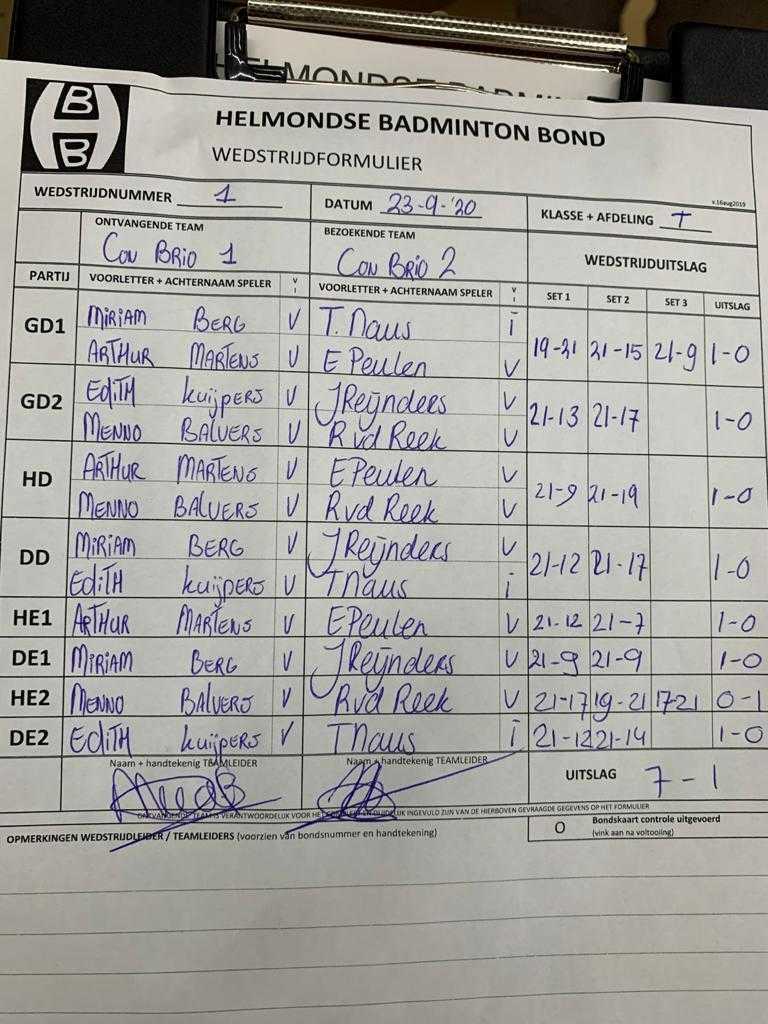 HELMONDSE BADMIN
H B B
HELMONDSE BADMINTON BOND
WEDSTRIJDFORMULIER
v.16aug2019
WEDSTRIJDNUMMER 1 DATUM 23-9-'20 KLASSE + AFDELING T
ONTVANGENDE TEAM BEZOEKENDE TEAM WEDSTRIJDUITSLAG
CON BRIO 1 CON BRIO 2
PARTIJ VOORLETTER + ACHTERNAAM SPELER V I VOORLETTER + ACHTERNAAM SPELER V I SET 1 SET 2 SET 3 UITSLAG
GD1 MiRiAM BERG V T. Naus i 19-21 21-15 21-9 1-0
ARTHUR MARTENS V E Peulen V
GD2 EdiTH kuijpers V J Reijnders V 21-13 21-17 1-0
MENNO BALVERS V R vd Reek V
HD ARTHUR MARTENS V E Peulen V 21-9 21-19 1-0
MENNO BALVERS V R vd Reek V
DD MiRiAM BERG V J Reijnders V 21-12 21-17 1-0
EdiTH kuijpers V T Naus i
HE1 ARTHUR MARTENS V E Peulen V 21-12 21-7 1-0
DE1 MiRiAM BERG V J Reijnders V 21-9 21-9 1-0
HE2 MENNO BALVERS V R vd Reek V 21-17 19-21 17-21 0-1
DE2 EdiTH kuijpers V T Naus i 21-12 21-14 1-0
Naam + handtekenig TEAMLEIDER Naam + handtekenig TEAMLEIDER UITSLAG 7-1
ONTVANGENDE TEAM IS VERANTWOORDELIJK VOOR HET EN DUIDELIJK INGEVULD ZIJN VAN DE HIERBOVEN GEVRAAGDE GEGEVENS OP HET FORMULIER
OPMERKINGEN WEDSTRIJDLEIDER / TEAMLEIDERS (voorzien van bondsnummer en handtekening) O Bondskaart controle uitgevoerd
(vink aan na voltooiing)